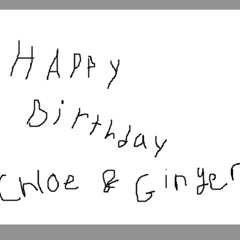 HAPPY
Birthday
Chloe & Ginger